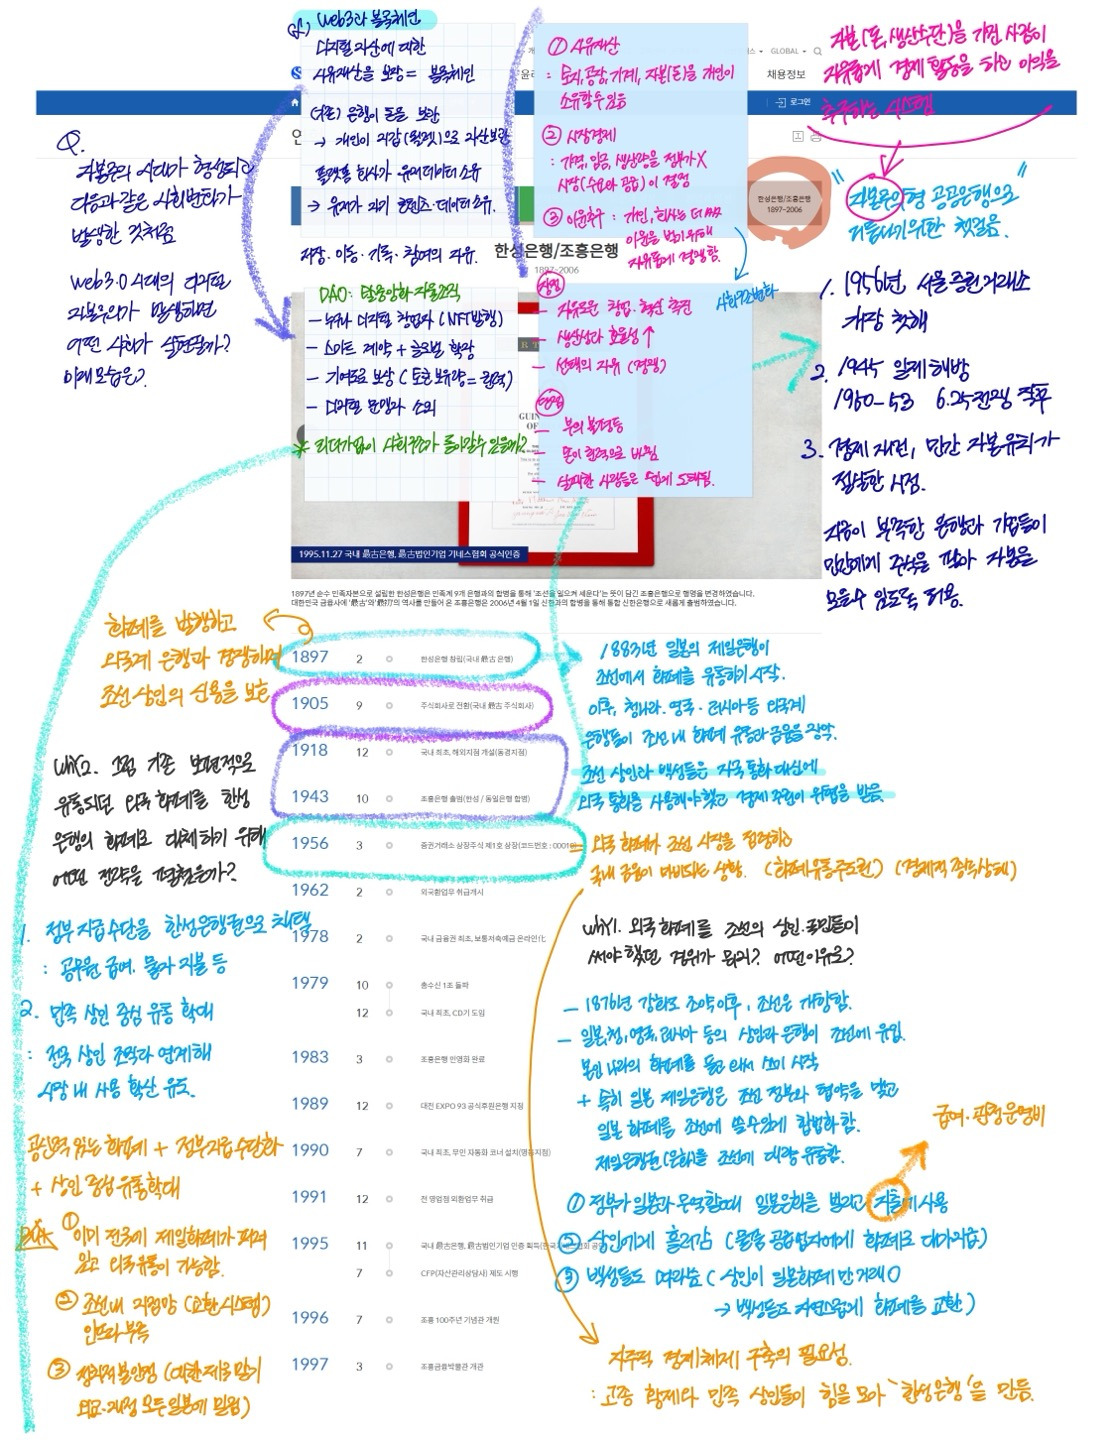 Web3와 블록체인
디지털 자산에 대한
사유재산을 보장 = 블록체인
(기존) 은행이 돈을 보관
→ 개인이 지갑(월렛)으로 자산보관
플랫폼 회사가 유저데이터 소유
→ 유저가 자기 컨텐츠·데이터 소유.
저장·이동·기록·참여의 자유.
DAO: 탈중앙화 자율조직
– 누구나 디지털 창업자 (NFT발행)
– 스마트 계약 + 글로벌 확장
– 기여도로 보상 (토큰 보유량 = 권력)
– 디지털 문맹과 소외
① 사유재산
: 토지, 공장, 기계, 자본(돈)을 개인이
소유할 수 있음
② 시장경제
: 가격, 임금, 생산량을 정부가 X
시장(수요와 공급)이 결정
③ 이윤추구 : 개인, 회사는 더 많은
이윤을 벌기 위해
자유롭게 경쟁함.
사회구조변화
장점
– 자유로운 창업·혁신 촉진
– 생산성과 효율성 ↑
– 선택의 자유 (경쟁)
단점
– 부의 불평등
– 돈이 권력으로 바뀜
– 실패한 사람들은 쉽게 도태됨.
GLOBAL
채용정보
로그인
자본(돈, 생산수단)을 가진 사람이
자유롭게 경제 활동을 하면 이익을
추구하는 시스템
한성은행/조흥은행
1897-2006
" 자본주의형 공공은행으로 "
거듭나기위한 첫걸음.
1. 1956년, 서울 증권거래소
개장 첫해
2. 1945 일제해방
1950-53 6.25전쟁 직후
3. 경제 재건, 민간 자본유치가
절실한 시점.
자금이 부족한 은행과 기업들이
민간에게 주식을 팔아 자본을
모을수 있도록 허용.
Q.
자본주의 시대가 형성되고
다음과 같은 사회변화가
발생한 것처럼
Web3.0 시대의 디지털
자본주의가 발생하면
어떤 사회가 실현될까?
미래 모습은?
한성은행/조흥은행
1897-2006
1995.11.27 국내 最古은행, 最古법인기업 기네스협회 공식인증
1897년 순수 민족자본으로 설립한 한성은행은 민족계 9개 은행과의 합병을 통해 '조선을 일으켜 세운다'는 뜻이 담긴 조흥은행으로 행명을 변경하였습니다.
대한민국 금융사에 '最古'와 '最初'의 역사를 만들어 온 조흥은행은 2006년 4월 1일 신한과의 합병을 통해 통합 신한은행으로 새롭게 출범하였습니다.
화폐를 발행하고
외국계 은행과 경쟁하며
조선 상인의 신용을 보호
1897 2 한성은행 창립(국내 最古 은행)
1905 9 주식회사로 전환(국내 最古 주식회사)
1918 12 국내 최초, 해외지점 개설(동경지점)
1943 10 조흥은행 출범(한성 / 동일은행 합병)
1956 3 증권거래소 상장주식 제1호 상장(코드번호 : 00010)
1962 2 외국환업무 취급개시
1978 2 국내 금융권 최초, 보통저축예금 온라인化
1979 10 총수신 1조 돌파
12 국내 최초, CD기 도입
1983 3 조흥은행 민영화 완료
1989 12 대전 EXPO 93 공식후원은행 지정
1990 7 국내 최초, 무인 자동화 코너 설치(명동지점)
1991 12 전 영업점 외환업무 취급
1995 11 국내 最古은행, 最古법인기업 인증 획득
7 CFP(자산관리상담사) 제도 시행
1996 7 조흥 100주년 기념관 개원
1997 3 조흥금융박물관 개관
1883년 일본의 제일은행이
조선에서 화폐를 유통하기 시작.
이후, 청나라·영국·러시아등 외국계
은행들이 조선 내 화폐 유통과 금융을 장악.
조선 상인과 백성들은 자국 통화 대신에
외국 통화를 사용해야 했고 경제 주권이 위협을 받음.
= 외국 화폐가 조선 시장을 점령하고
국내 금융이 마비되는 상황. (화폐유통주도권) (경제적 종속상태)
Why1. 외국 화폐를 조선의 상인·국민들이
써야 했던 경위가 뭐지? 어떤이유로?
– 1876년 강화도 조약 이후, 조선은 개항함.
– 일본, 청, 영국, 러시아 등의 상인과 은행이 조선에 유입.
본인 나라의 화폐를 들고 와서 쓰기 시작
+ 특히 일본 제일은행은 조선 정부와 협약을 맺고
일본 화폐를 조선에 쓸 수 있게 합법화 함.
제일은행권(은화)을 조선에 대량 유통함.
급여·관청운영비
① 정부가 일본과 무역할때 일본은화를 빌리고 지출에 사용
② 상인에게 흘러감 (물품 공급업자에게 화폐로 대가지급)
③ 백성들도 따라씀 ( 상인이 일본화폐만 거래O
→ 백성들도 자연스럽게 화폐를 교환 )
자주적 경제체제 구축의 필요성.
: 고종 황제와 민족 상인들이 힘을 모아 '한성은행'을 만듦.
Why2. 그럼 기존 보편적으로
유통되던 외국 화폐를 한성
은행의 화폐로 대체하기 위해
어떤 전략을 펼쳤을까?
1. 정부 지급수단을 한성은행권으로 채택
: 공무원 급여, 물자 지불 등
2. 민족 상인 중심 유통 확대
: 전국 상인 조직과 연계해
시장 내 사용 확산 유도.
공신력 있는 화폐 + 정부지급수단화
+ 상인 중심 유통확대
① 이미 전국에 제일화폐가 퍼져
있고 외국유통이 가능함.
② 조선내 지점망 (교환시스템)
인프라 부족
③ 정치적 불안정 (대한제국 말기
외교·재정 모든 일본에 밀림)